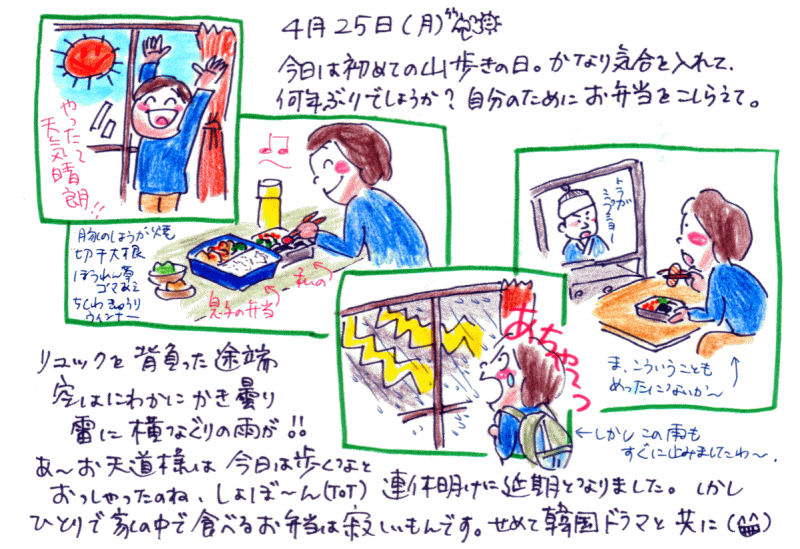 4月25日(月)
今日は初めての山歩きの日。かなり気合を入れて、
何年ぶりでしょうか?自分のためにお弁当をこしらえて。
やったー
天気晴朗!!
豚のしょうが焼
切干大根
ほうれん草
ゴマあえ
ちくわきゅうり
ウィンナー
息子の弁当
私の
トラが
ミプショー
ま、こういうことも
めったにないか〜
あちゃ〜っ
←しかしこの雨も
すぐに止みましたわ〜。
リュックを背負った途端
空はにわかにかき曇り
雷に横なぐりの雨が!!
あ〜お天道様は今日は歩くなと
おっしゃったのね、しょぼ〜ん(ToT) 連休明けに延期となりました。しかし
ひとりで家の中で食べるお弁当は寂しいもんです。せめて韓国ドラマと共に